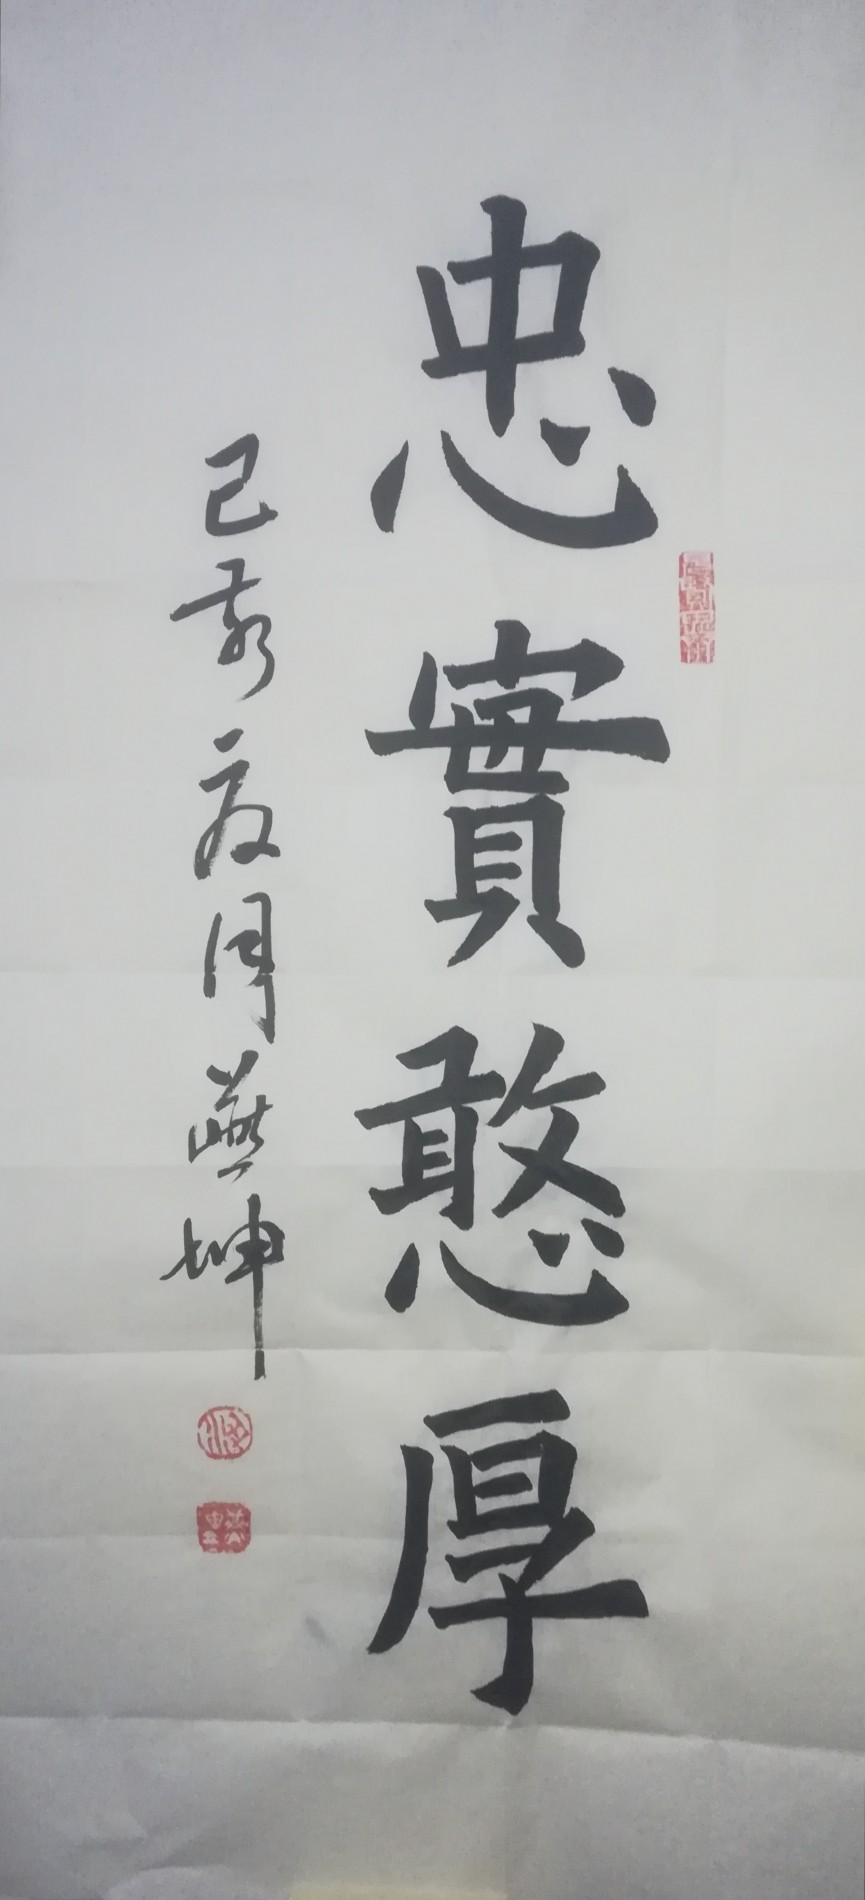 忠實憨厚
己亥夏月燕坤